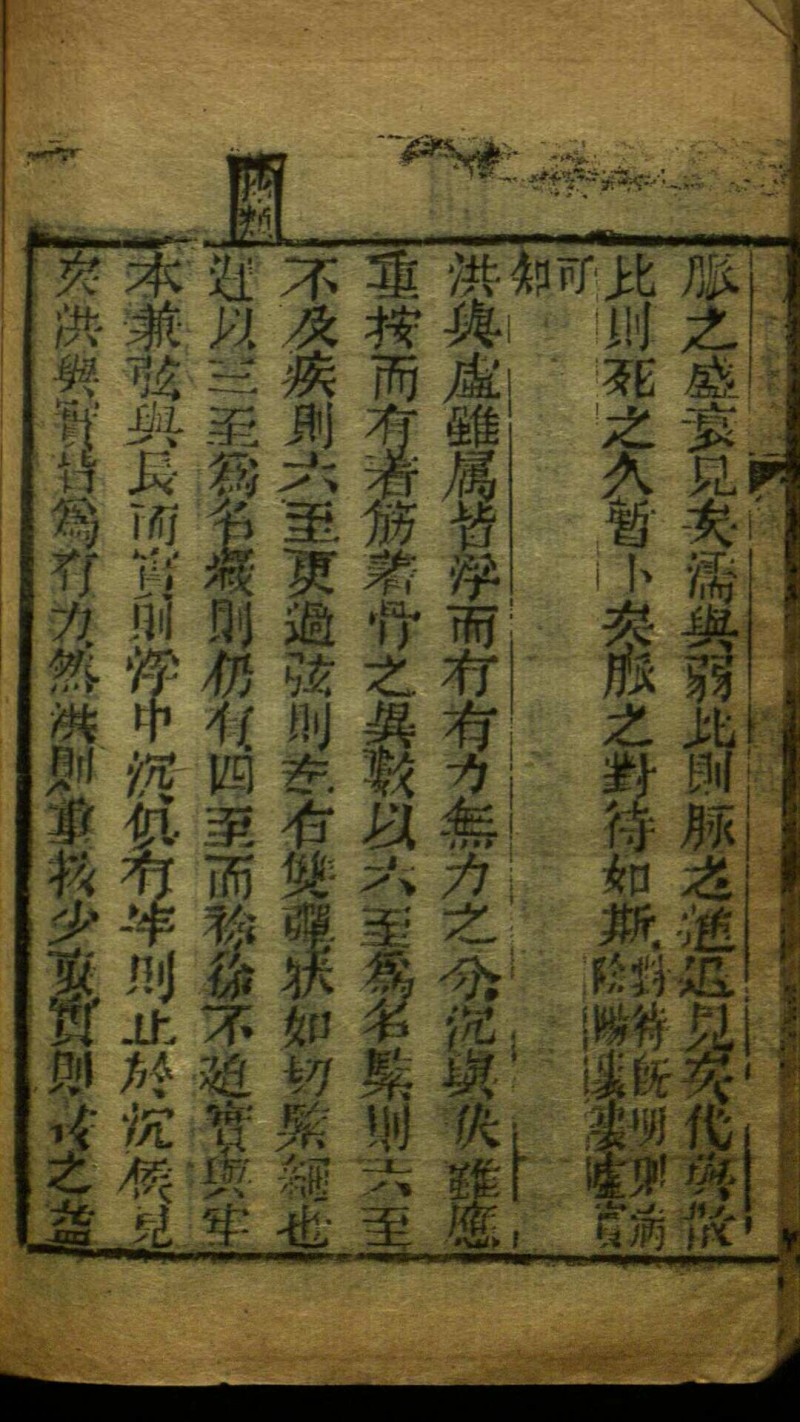 脈之盛衰見矣濡與弱比則脉之進退見矣代與散
比則死之久暫卜矣脈之對待如斯
對待旣明則病
陰陽表裏虛實
可
知
洪與虛雖属皆浮而有有力無力之分沉與伏雖應
重按而有著筋著骨之異數以六至爲名緊則六至
不及疾則六至更過弦則左右雙彈狀如切緊繩也
遲以三至爲名緩則仍有四至而徐徐不迫實與牢
本兼弦與長而實則浮中沉俱有牢則止於沉候見
矣洪與實皆爲有力然洪則重按少衰實則按之益